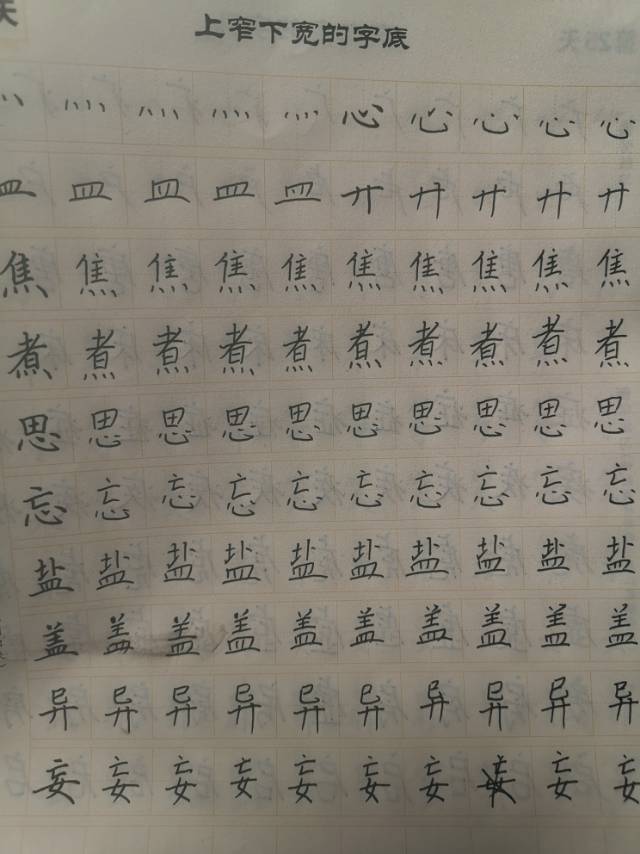 天
上窄下宽的字底
灬 灬 灬 灬 灬 心 心 心 心 心
皿 皿 皿 皿 皿 廾 廾 廾 廾 廾
焦 焦 焦 焦 焦 焦 焦 焦 焦 焦
煮 煮 煮 煮 煮 煮 煮 煮 煮 煮
思 思 思 思 思 思 思 思 思 思
忘 忘 忘 忘 忘 忘 忘 忘 忘 忘
盐 盐 盐 盐 盐 盐 盐 盐 盐 盐
盖 盖 盖 盖 盖 盖 盖 盖 盖 盖
异 异 异 异 异 异 异 异 异 异
妄 妄 妄 妄 妄 妄 妄 妄 妄